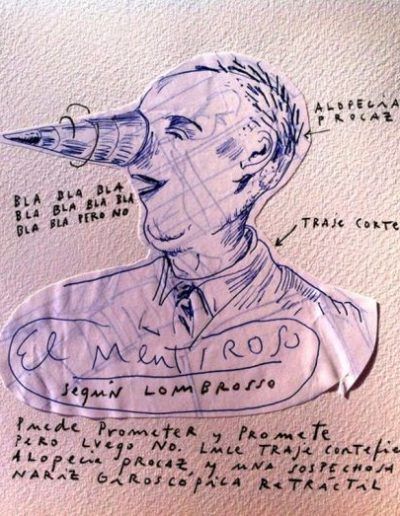 ALOPECIA
PROCAZ
BLA BLA BLA
BLA BLA BLA BLA
BLA BLA PERO NO
TRAJE CORTE
El MENTIROSO
SEGÚN LOMBROSSO
PUEDE PROMETER Y PROMETE
PERO LUEGO NO. LUCE TRAJE CORTEFIE
ALOPECIA PROCAZ, Y UNA SOSPECHOSA
NARIZ GIROSCÓPICA RETRÁCTIL